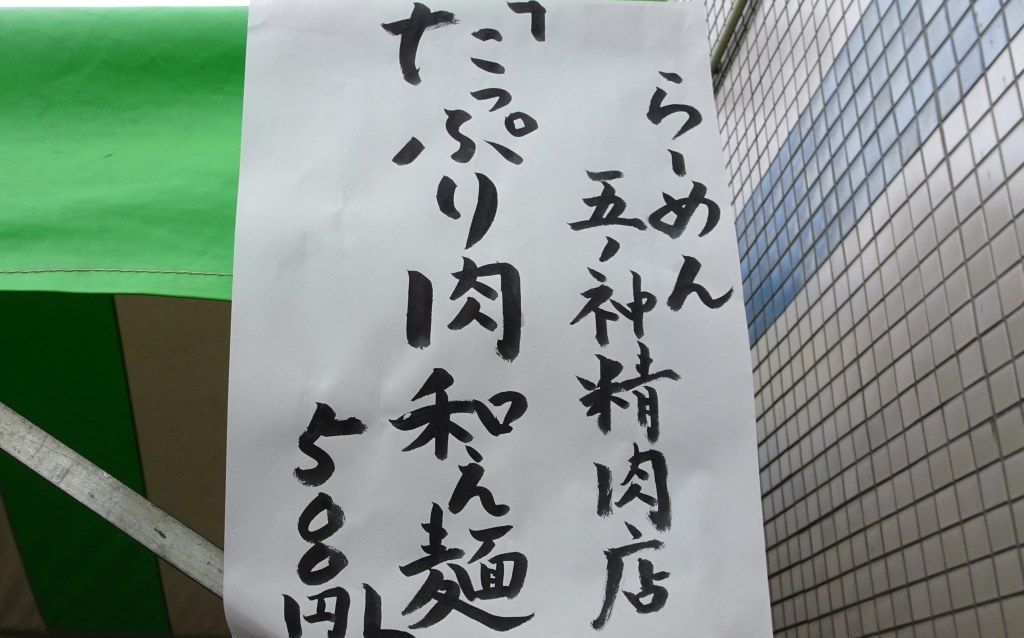 らーめん
五ノ神精肉店
「たっぷり肉和え麺」
500円